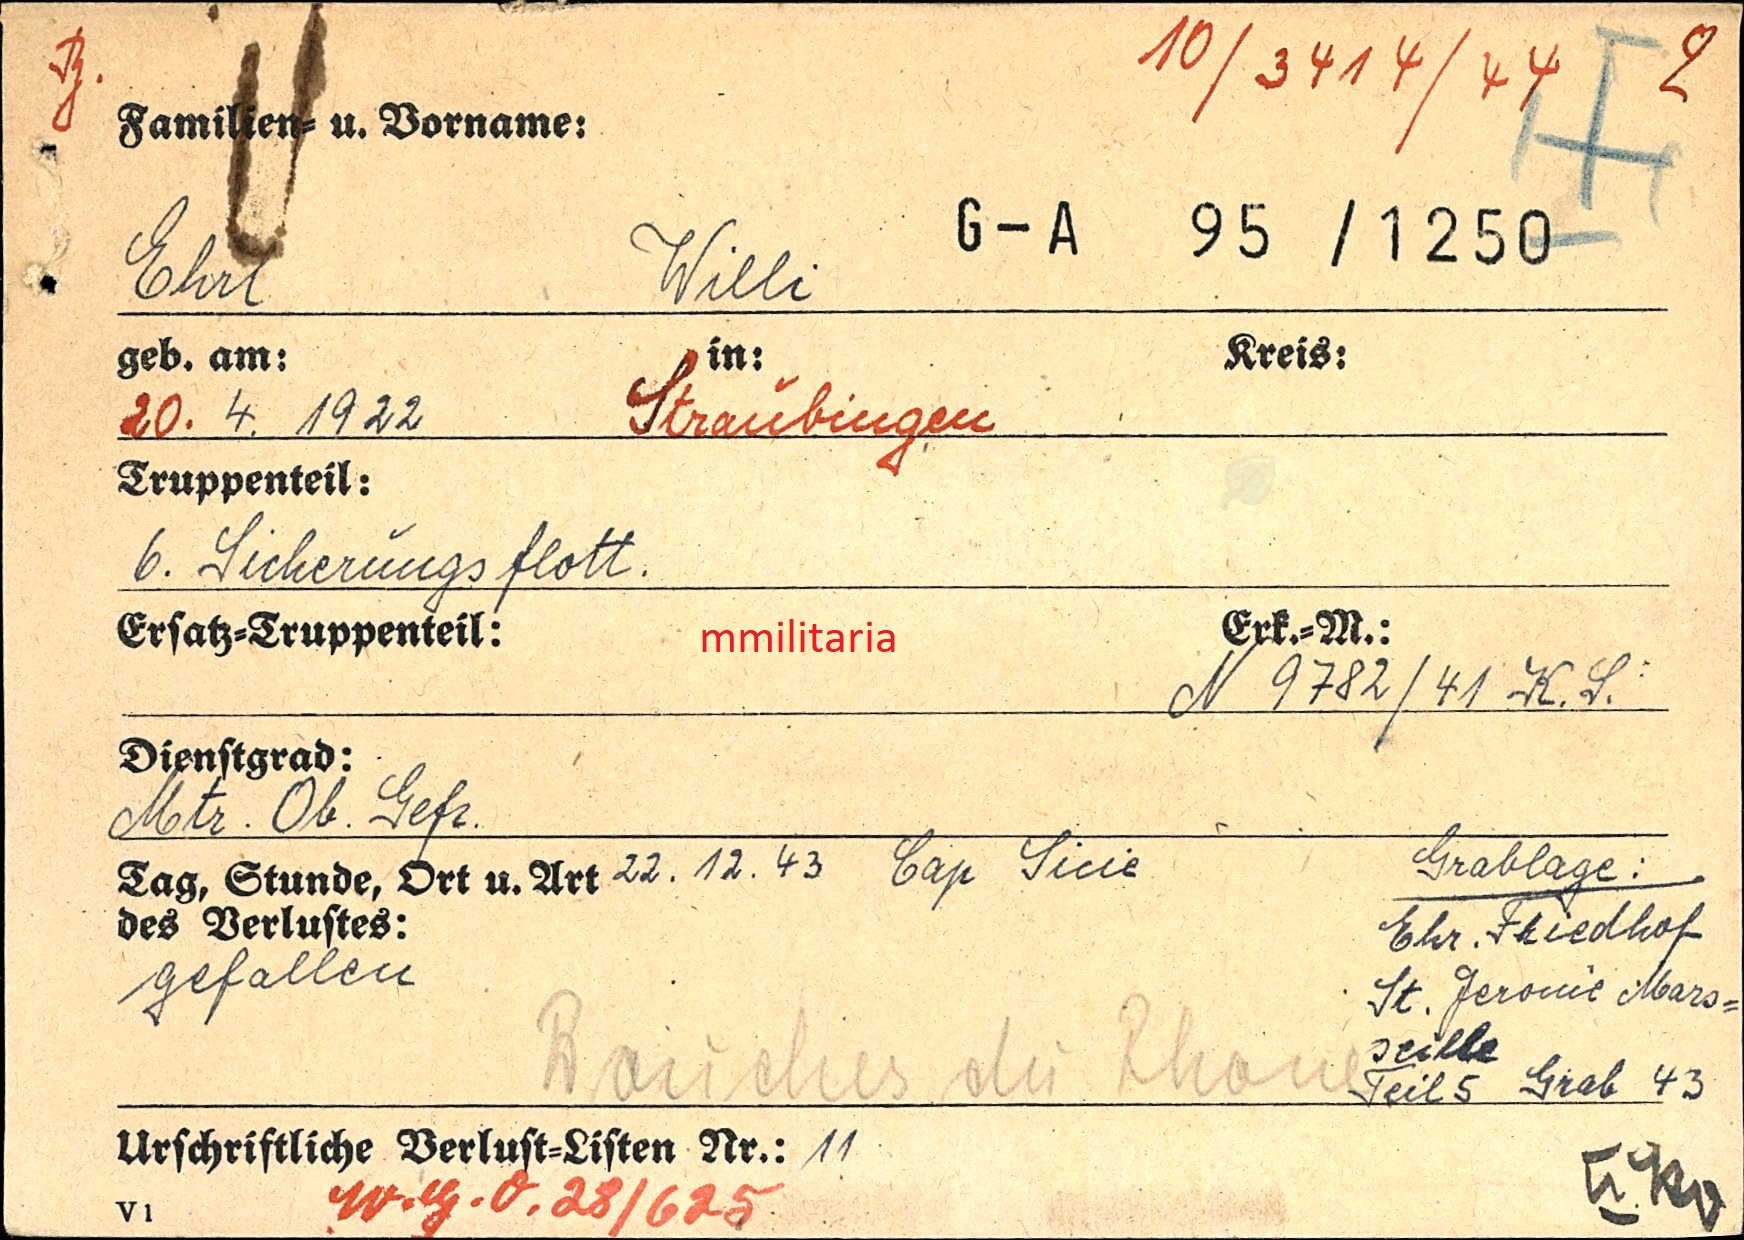 10/3414/44 2
Familien- u. Vorname:
G-A 95 /1250
Ehrl Willi
geb. am: in: Kreis:
20. 4. 1922 Straubingen
Truppenteil:
6. Sicherungsflott.
Ersatz-Truppenteil: mmilitaria Erk.-M.:
N 9782/41 K.S.
Dienstgrad:
Mtr. Ob. Gefr.
Tag, Stunde, Ort u. Art 22. 12. 43 Cap Sicie Grablage:
des Verlustes: Ehr. Friedhof
gefallen St. Jeromie Mars=
Bouches du Rhone seille
Teil 5 Grab 43
Urschriftliche Verlust-Listen Nr.: 11
V1 W.G.O. 28/625